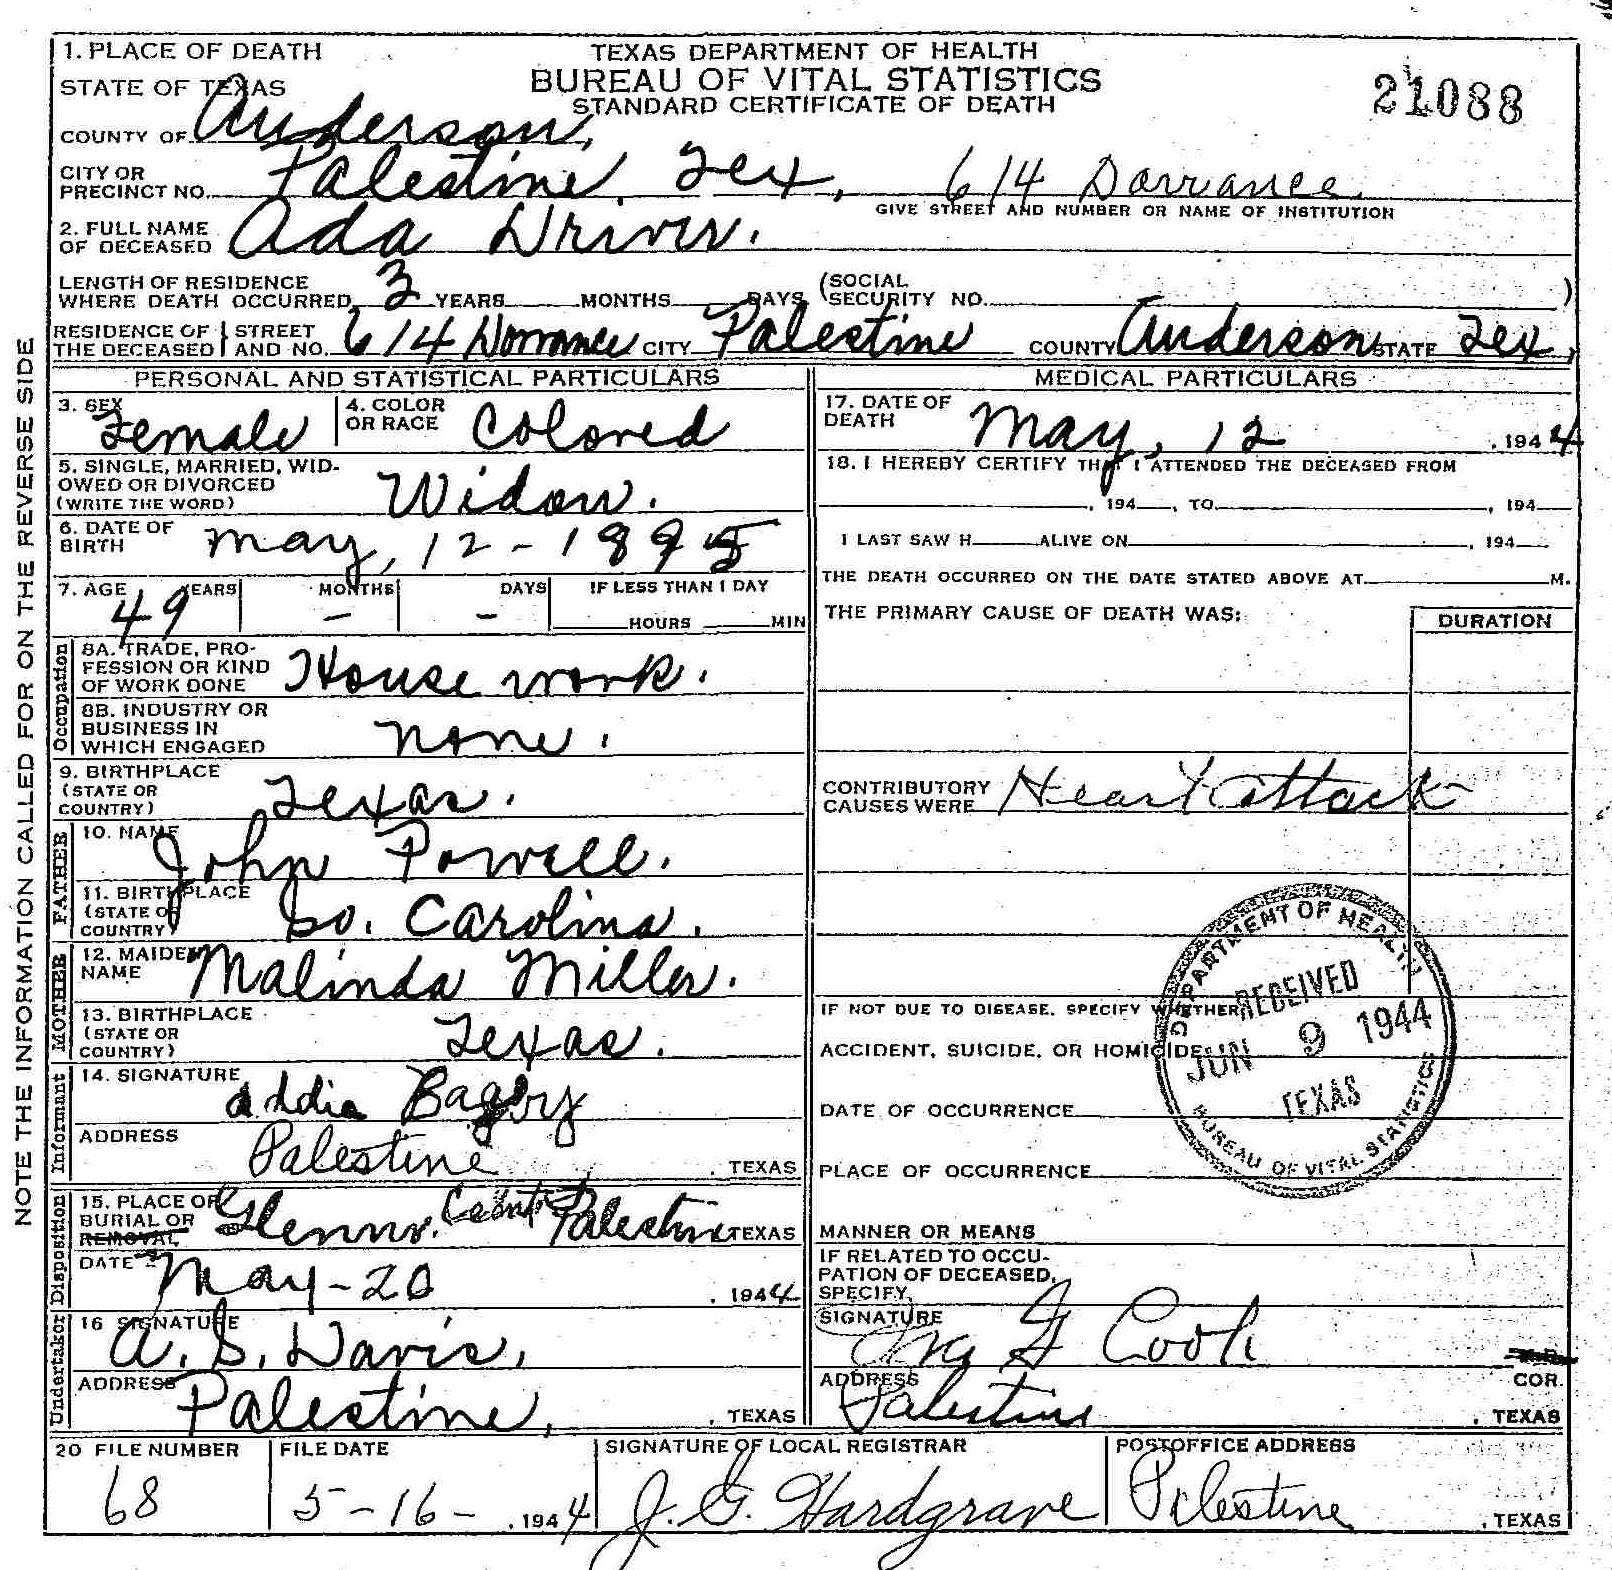 1. PLACE OF DEATH
TEXAS DEPARTMENT OF HEALTH
STATE OF TEXAS
BUREAU OF VITAL STATISTICS
STANDARD CERTIFICATE OF DEATH
21088
COUNTY OF Anderson,
CITY OR PRECINCT NO. Palestine, Tex, 614 Dorrance
GIVE STREET AND NUMBER OR NAME OF INSTITUTION
2. FULL NAME OF DECEASED Ada Driver.
LENGTH OF RESIDENCE WHERE DEATH OCCURRED 3 YEARS MONTHS DAYS (SOCIAL SECURITY NO. )
RESIDENCE OF THE DECEASED STREET AND NO. 614 Dorrance CITY Palestine COUNTY Anderson STATE Tex,
PERSONAL AND STATISTICAL PARTICULARS
3. SEX Female 4. COLOR OR RACE Colored
5. SINGLE, MARRIED, WIDOWED OR DIVORCED (WRITE THE WORD) Widow.
6. DATE OF BIRTH May, 12 - 1895
7. AGE 49 YEARS - MONTHS - DAYS IF LESS THAN 1 DAY HOURS MIN
Occupation
8A. TRADE, PROFESSION OR KIND OF WORK DONE House work.
8B. INDUSTRY OR BUSINESS IN WHICH ENGAGED None.
9. BIRTHPLACE (STATE OR COUNTRY) Texas.
FATHER
10. NAME John Powell.
11. BIRTHPLACE (STATE OR COUNTRY) So. Carolina.
MOTHER
12. MAIDEN NAME Malinda Miller.
13. BIRTHPLACE (STATE OR COUNTRY) Texas.
Informant
14. SIGNATURE Addie Bagby
ADDRESS Palestine, TEXAS
Disposition
15. PLACE OF BURIAL OR REMOVAL Glenns. Palestine TEXAS
DATE May-20, 1944
Undertaker
16 SIGNATURE A. S. Davis,
ADDRESS Palestine, , TEXAS
MEDICAL PARTICULARS
17. DATE OF DEATH May, 12, 1944
18. I HEREBY CERTIFY THAT I ATTENDED THE DECEASED FROM
, 194 , TO , 194
I LAST SAW H ALIVE ON , 194
THE DEATH OCCURRED ON THE DATE STATED ABOVE AT M.
THE PRIMARY CAUSE OF DEATH WAS: DURATION
CONTRIBUTORY CAUSES WERE Heart attack
IF NOT DUE TO DISEASE, SPECIFY WHETHER
ACCIDENT, SUICIDE, OR HOMICIDE
DATE OF OCCURRENCE
PLACE OF OCCURRENCE
DEPARTMENT OF HEALTH
RECEIVED
JUN 9 1944
TEXAS
BUREAU OF VITAL STATISTICS
MANNER OR MEANS
IF RELATED TO OCCUPATION OF DECEASED, SPECIFY
SIGNATURE Ira G Cook
COR.
ADDRESS Palestine , TEXAS
20 FILE NUMBER 68
FILE DATE 5-16- , 1944
SIGNATURE OF LOCAL REGISTRAR J. G. Hardgrave
POSTOFFICE ADDRESS Palestine , TEXAS
NOTE THE INFORMATION CALLED FOR ON THE REVERSE SIDE